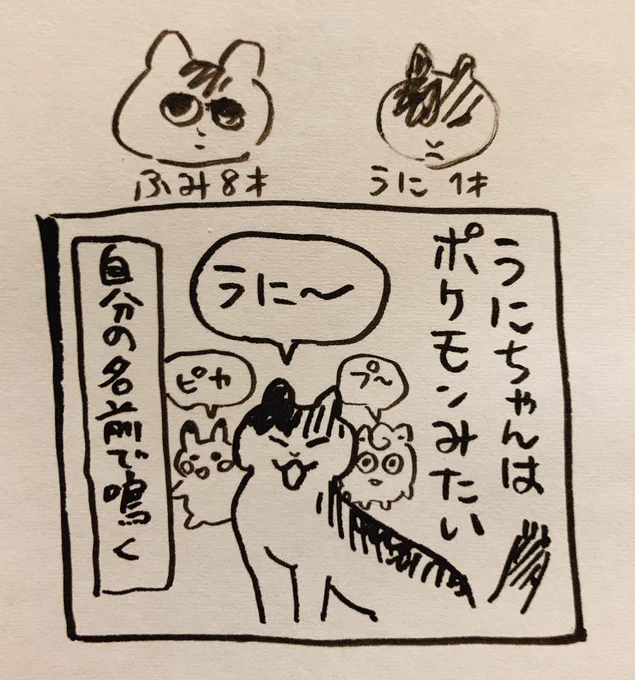 ふみ8才
うに 1才
うにちゃんは
ポケモンみたい
うに〜
プ〜
ピカ
自分の名前で鳴く